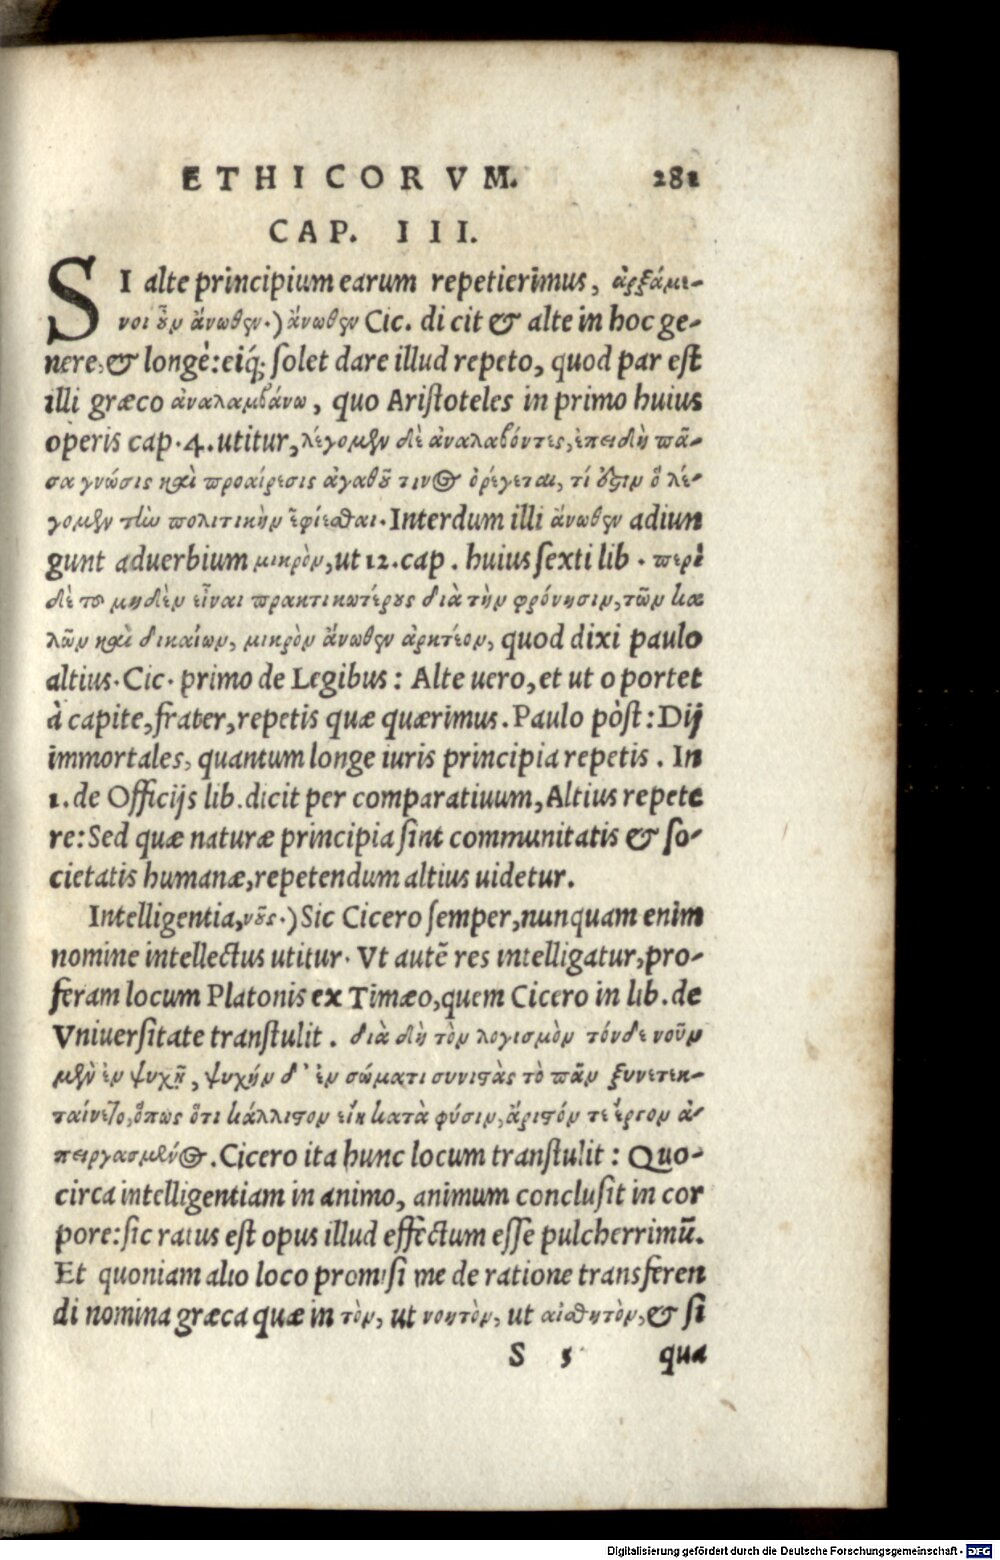 ETHICORVM. 281
CAP. III.
SI alte principium earum repetierimus, ἀρξάμε-
νοι οὖν ἄνωθεν.) ἄνωθεν Cic. dicit & alte in hoc ge-
nere, & longè: eiq́; solet dare illud repeto, quod par est
illi græco ἀναλαμβάνω, quo Aristoteles in primo huius
operis cap. 4. utitur, λέγομεν δὲ ἀναλαβόντες, ἐπειδὴ πᾶ-
σα γνώσις καὶ προαίρεσις ἀγαθοῦ τινος ὀρέγεται, τί οὗτιν ὃ λέ-
γομεν τὴν πολιτικὴν ἐφίεσθαι. Interdum illi ἄνωθεν adiun
gunt aduerbium μικρὸν, ut 12. cap. huius sexti lib. περὶ
δὲ το μηδὲν εἶναι πρακτικωτέρους διὰ τὴν φρόνησιν, τῶν κα
λῶν καὶ δικαίων, μικρὸν ἄνωθεν ἀρκτέον, quod dixi paulo
altius. Cic. primo de Legibus: Alte uero, et ut oportet
à capite, frater, repetis quæ quærimus. Paulo pòst: Dij
immortales, quantum longe iuris principia repetis. In
1. de Officijs lib. dicit per comparatiuum, Altius repete
re: Sed quæ naturæ principia sint communitatis & so-
cietatis humanæ, repetendum altius uidetur.
Intelligentia, νοῦς.) Sic Cicero semper, nunquam enim
nomine intellectus utitur. Vt autẽ res intelligatur, pro-
feram locum Platonis ex Timæo, quem Cicero in lib. de
Vniuersitate transtulit. διὰ δὴ τὸν λογισμὸν τόνδε νοῦν
μὲν ἐν ψυχῇ, ψυχήν δ' ἐν σώματι συνιστὰς τὸ πᾶν ξυνετεκ-
ταίνετο, ὅπως ὅτι κάλλιστον εἴη κατὰ φύσιν, ἄριστόν τε ἔργον ἀ-
πειργασμένος. Cicero ita hunc locum transtulit: Quo-
circa intelligentiam in animo, animum conclusit in cor
pore: sic ratus est opus illud effectum esse pulcherrimũ.
Et quoniam alio loco promisi me de ratione transferen
di nomina græca quæ in τὸν, ut νοητὸν, ut αἰσθητὸν, & si
S 5 qua
Digitalisierung gefördert durch die Deutsche Forschungsgemeinschaft - DFG